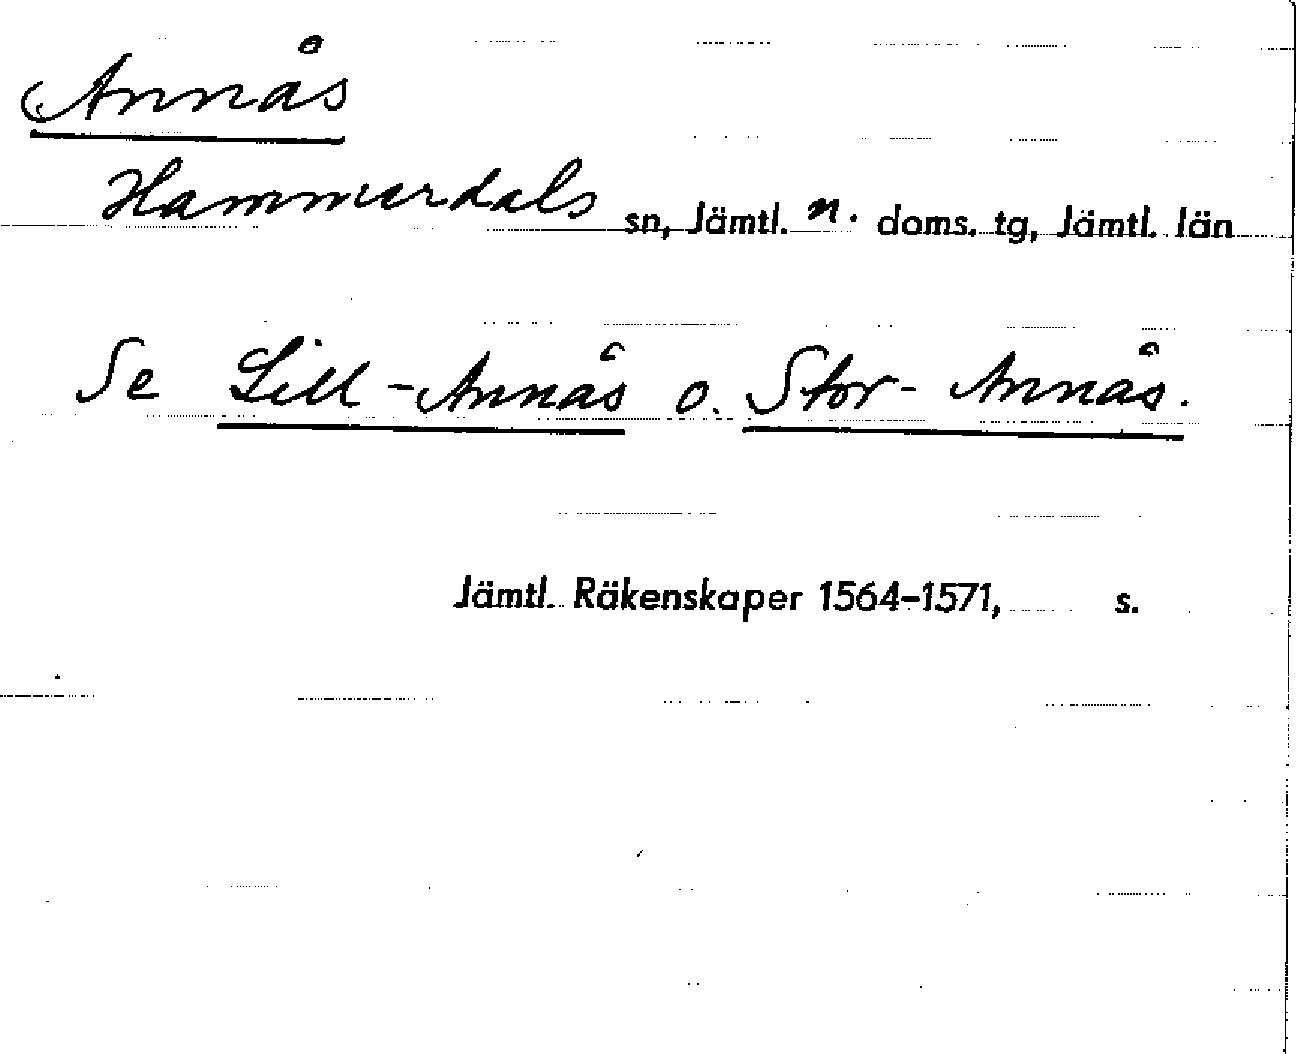 Annås
Hammerdals sn, Jämtl. n. doms. tg, Jämtl. län
Se Lill-Annås o. Stor-Annås.
Jämtl. Räkenskaper 1564-1571, s.